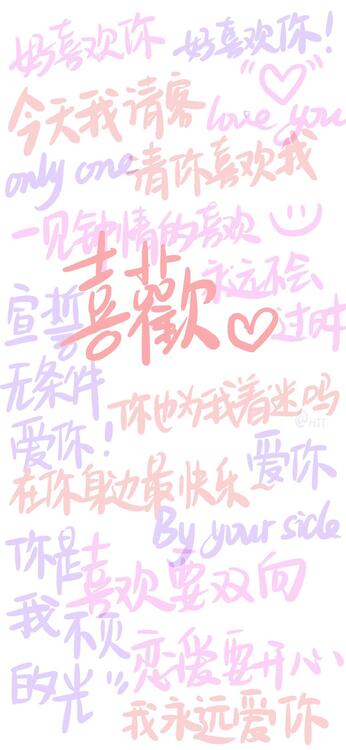 好喜欢你
好喜欢你!
今天我请客
love you
only one
请你喜欢我
一见钟情的喜欢
喜歡
永远不会
过时
宣誓
无条件
爱你!
你也为我着迷吗
爱你
在你身边最快乐~
By your side
你是
我
的光
喜欢要双向
不灭
恋爱要开心
我永远爱你